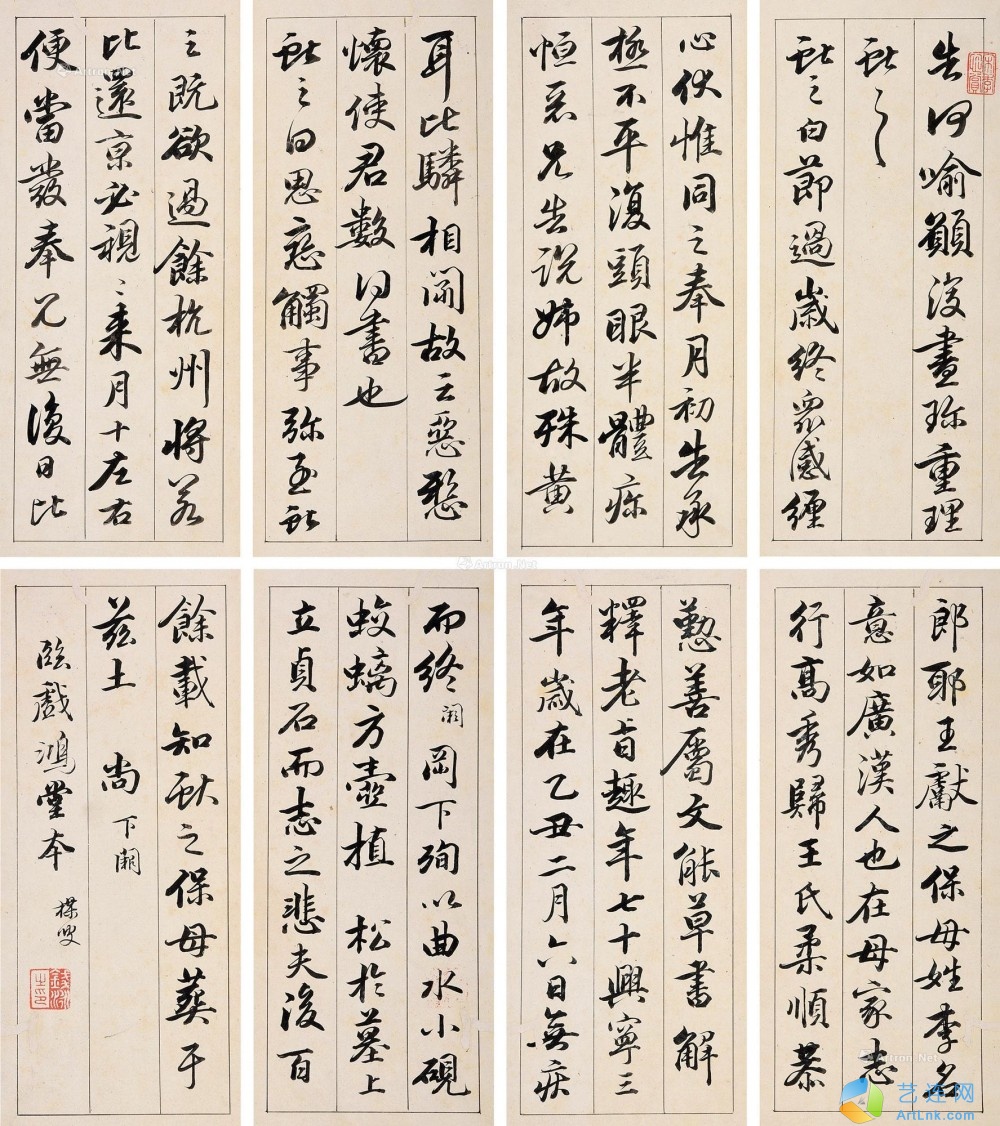 告何喻願深盡珍重理
獻之
獻之白節過歲終眾感纏
心伏惟同之奉月初告承
極不平復頭眼半體疼
恒惡兄告說姊故殊黃
耳比驎相聞故云惡懸
懷使君數得書也
獻之白思戀觸事彌至獻
之既欲過餘杭州將若
比還京必視之來月十左右
便當發奉兄無復日比
郎耶王獻之保母姓李名
意如廣漢人也在母家志
行高秀歸王氏柔順恭
懃善屬文能草書解
釋老旨趣年七十興寧三
年歲在乙丑二月六日無疾
而終闕岡下殉以曲水小硯
蛟螭方壺植 松於墓上
立貞石而志之悲夫後百
餘載知獻之保母葬于
茲土 尚下闕
臨戲鴻堂本 楳叟
錢泳之印
Artron.Net
艺连网
ArtLnk.com